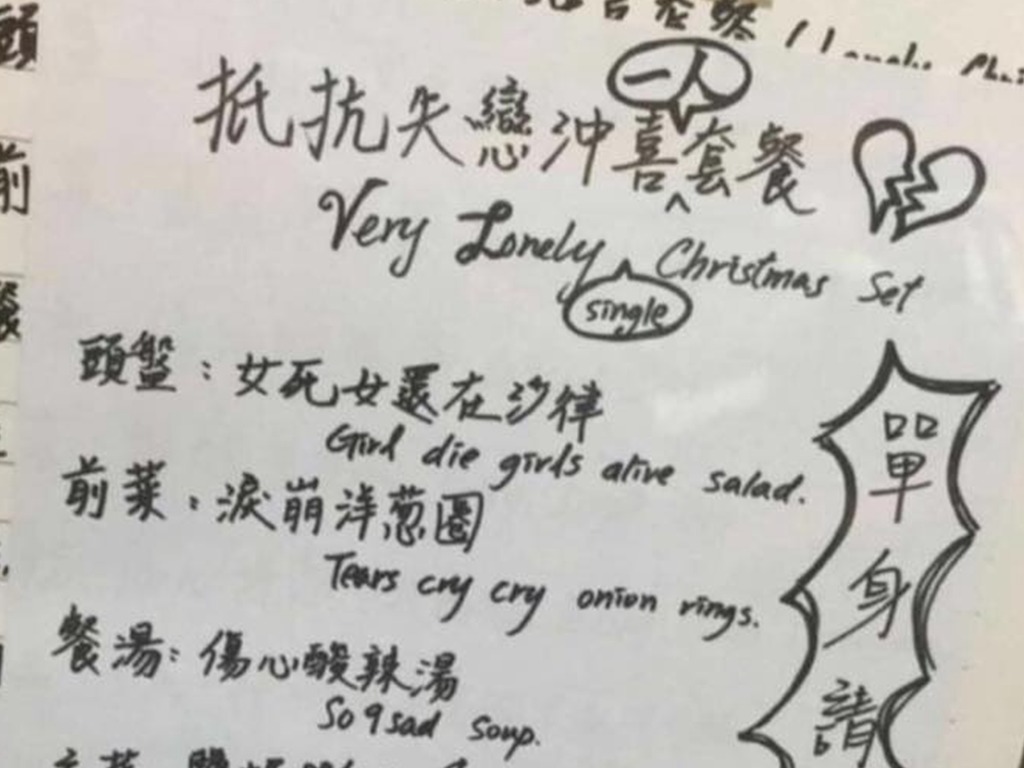 一人
抵抗失戀沖喜套餐
Very Lonely Christmas Set
single
頭盤：女死女還在沙律
Girl die girls alive salad.
前菜：淚崩洋葱圈
Tears cry cry onion rings.
餐湯：傷心酸辣湯
So 9 sad soup.
單身請
頭
前
餐